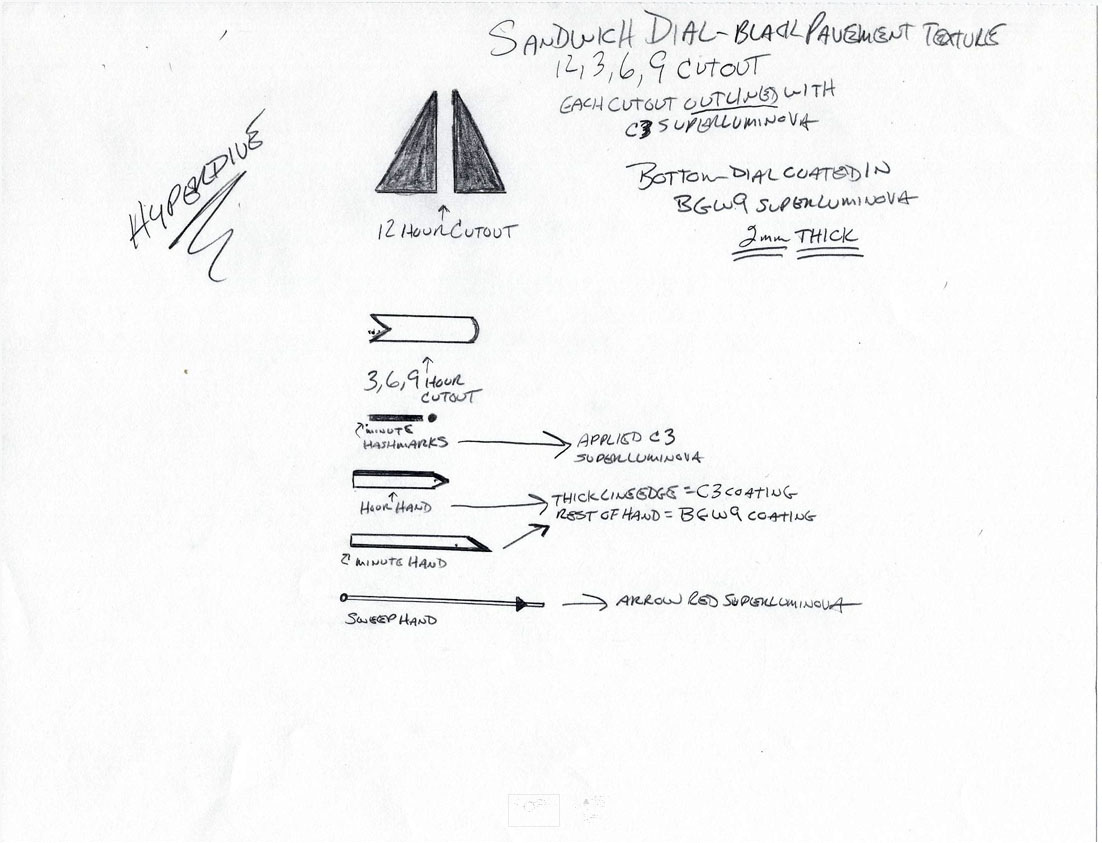 SANDWICH DIAL-BLACK PAVEMENT TEXTURE
12, 3, 6, 9 CUTOUT
EACH CUTOUT OUTLINED WITH
C3 SUPERLUMINOVA
HYPERDIVE
BOTTOM DIAL COATED IN
BGW9 SUPERLUMINOVA
2mm THICK
12 HOUR CUTOUT
3, 6, 9 HOUR
CUTOUT
MINUTE
HASHMARKS
APPLIED C3
SUPERLUMINOVA
HOUR HAND
THICK LINE EDGE = C3 COATING
REST OF HAND = BGW9 COATING
MINUTE HAND
ARROW RED SUPERLUMINOVA
SWEEP HAND